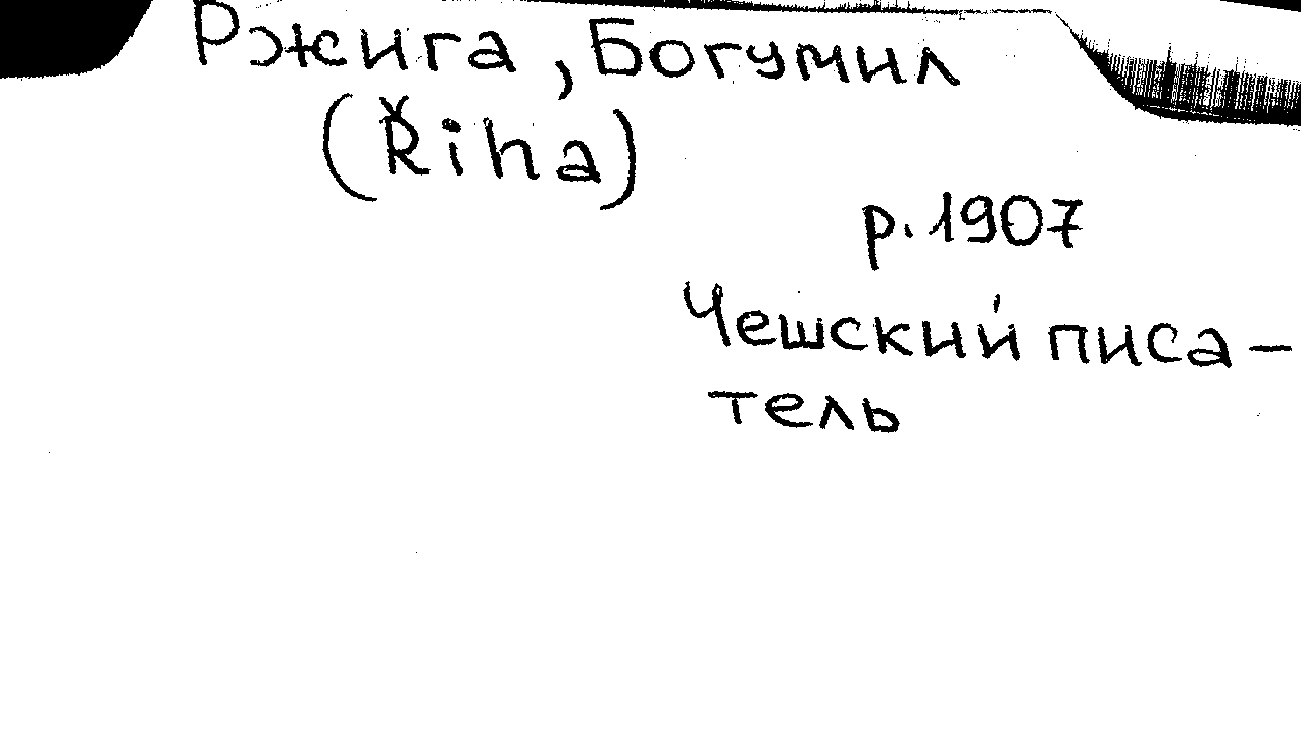 Ржига, Богумил
(Řiha)
р. 1907
Чешский писа-
тель